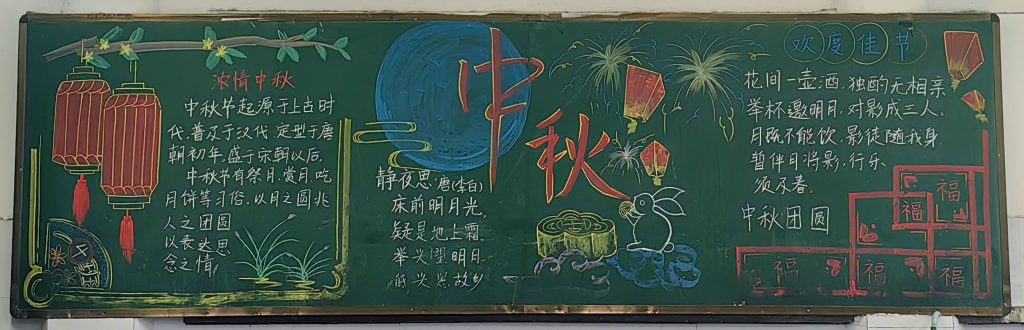 浓情中秋
中秋节起源于上古时
代,普及于汉代,定型于唐
朝初年,盛于宋朝以后.
中秋节有祭月,赏月,吃
月饼等习俗,以月之圆兆
人之团圆
以表达思
念之情
中秋
静夜思 唐(李白)
床前明月光,
疑是地上霜.
举头望明月
低头思故乡
欢度佳节
花间一壶酒,独酌无相亲
举杯邀明月,对影成三人.
月既不能饮,影徒随我身
暂伴月将影,行乐
须及春.
中秋团圆
福
福
福
福
福